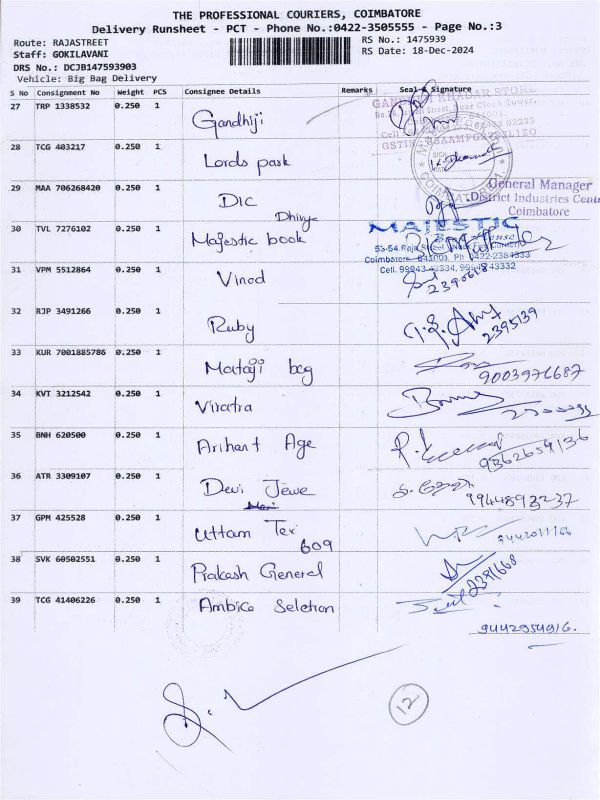 THE PROFESSIONAL COURIERS, COIMBATORE
Delivery Runsheet - PCT - Phone No.:0422-3505555 - Page No.:3
Route: RAJASTREET
RS No.: 1475939
Staff: GOKILAVANI
RS Date: 18-Dec-2024
DRS No.: DCJB147593903
Vehicle: Big Bag Delivery
S No Consignment No Weight PCS Consignee Details Remarks Seal & Signature
27 TRP 1338532 0.250 1 Gandhiji
28 TCG 403217 0.250 1 Lords park
29 MAA 706268420 0.250 1 DIC
General Manager
District Industries Cent
Coimbatore
Dhivya
30 TVL 7276102 0.250 1 Majestic book
MAJESTIC
53-54, Raja Street
Coimbatore - 641001. Ph: 0422-2384333
31 VPM 5512864 0.250 1 Vinod
2390618
32 RJP 3491266 0.250 1 Ruby
2395139
33 KUR 7001885786 0.250 1 Mataji bag
9003976687
34 KVT 3212542 0.250 1 Viratra
35 BNH 620500 0.250 1 Arihant Age
9362659136
36 ATR 3309107 0.250 1 Devi Jewe
9944893237
37 GPM 425528 0.250 1 Uttam Tex
609
38 SVK 60502551 0.250 1 Prakash General
2391668
39 TCG 41406226 0.250 1 Ambica Seletion
9442954916.
12